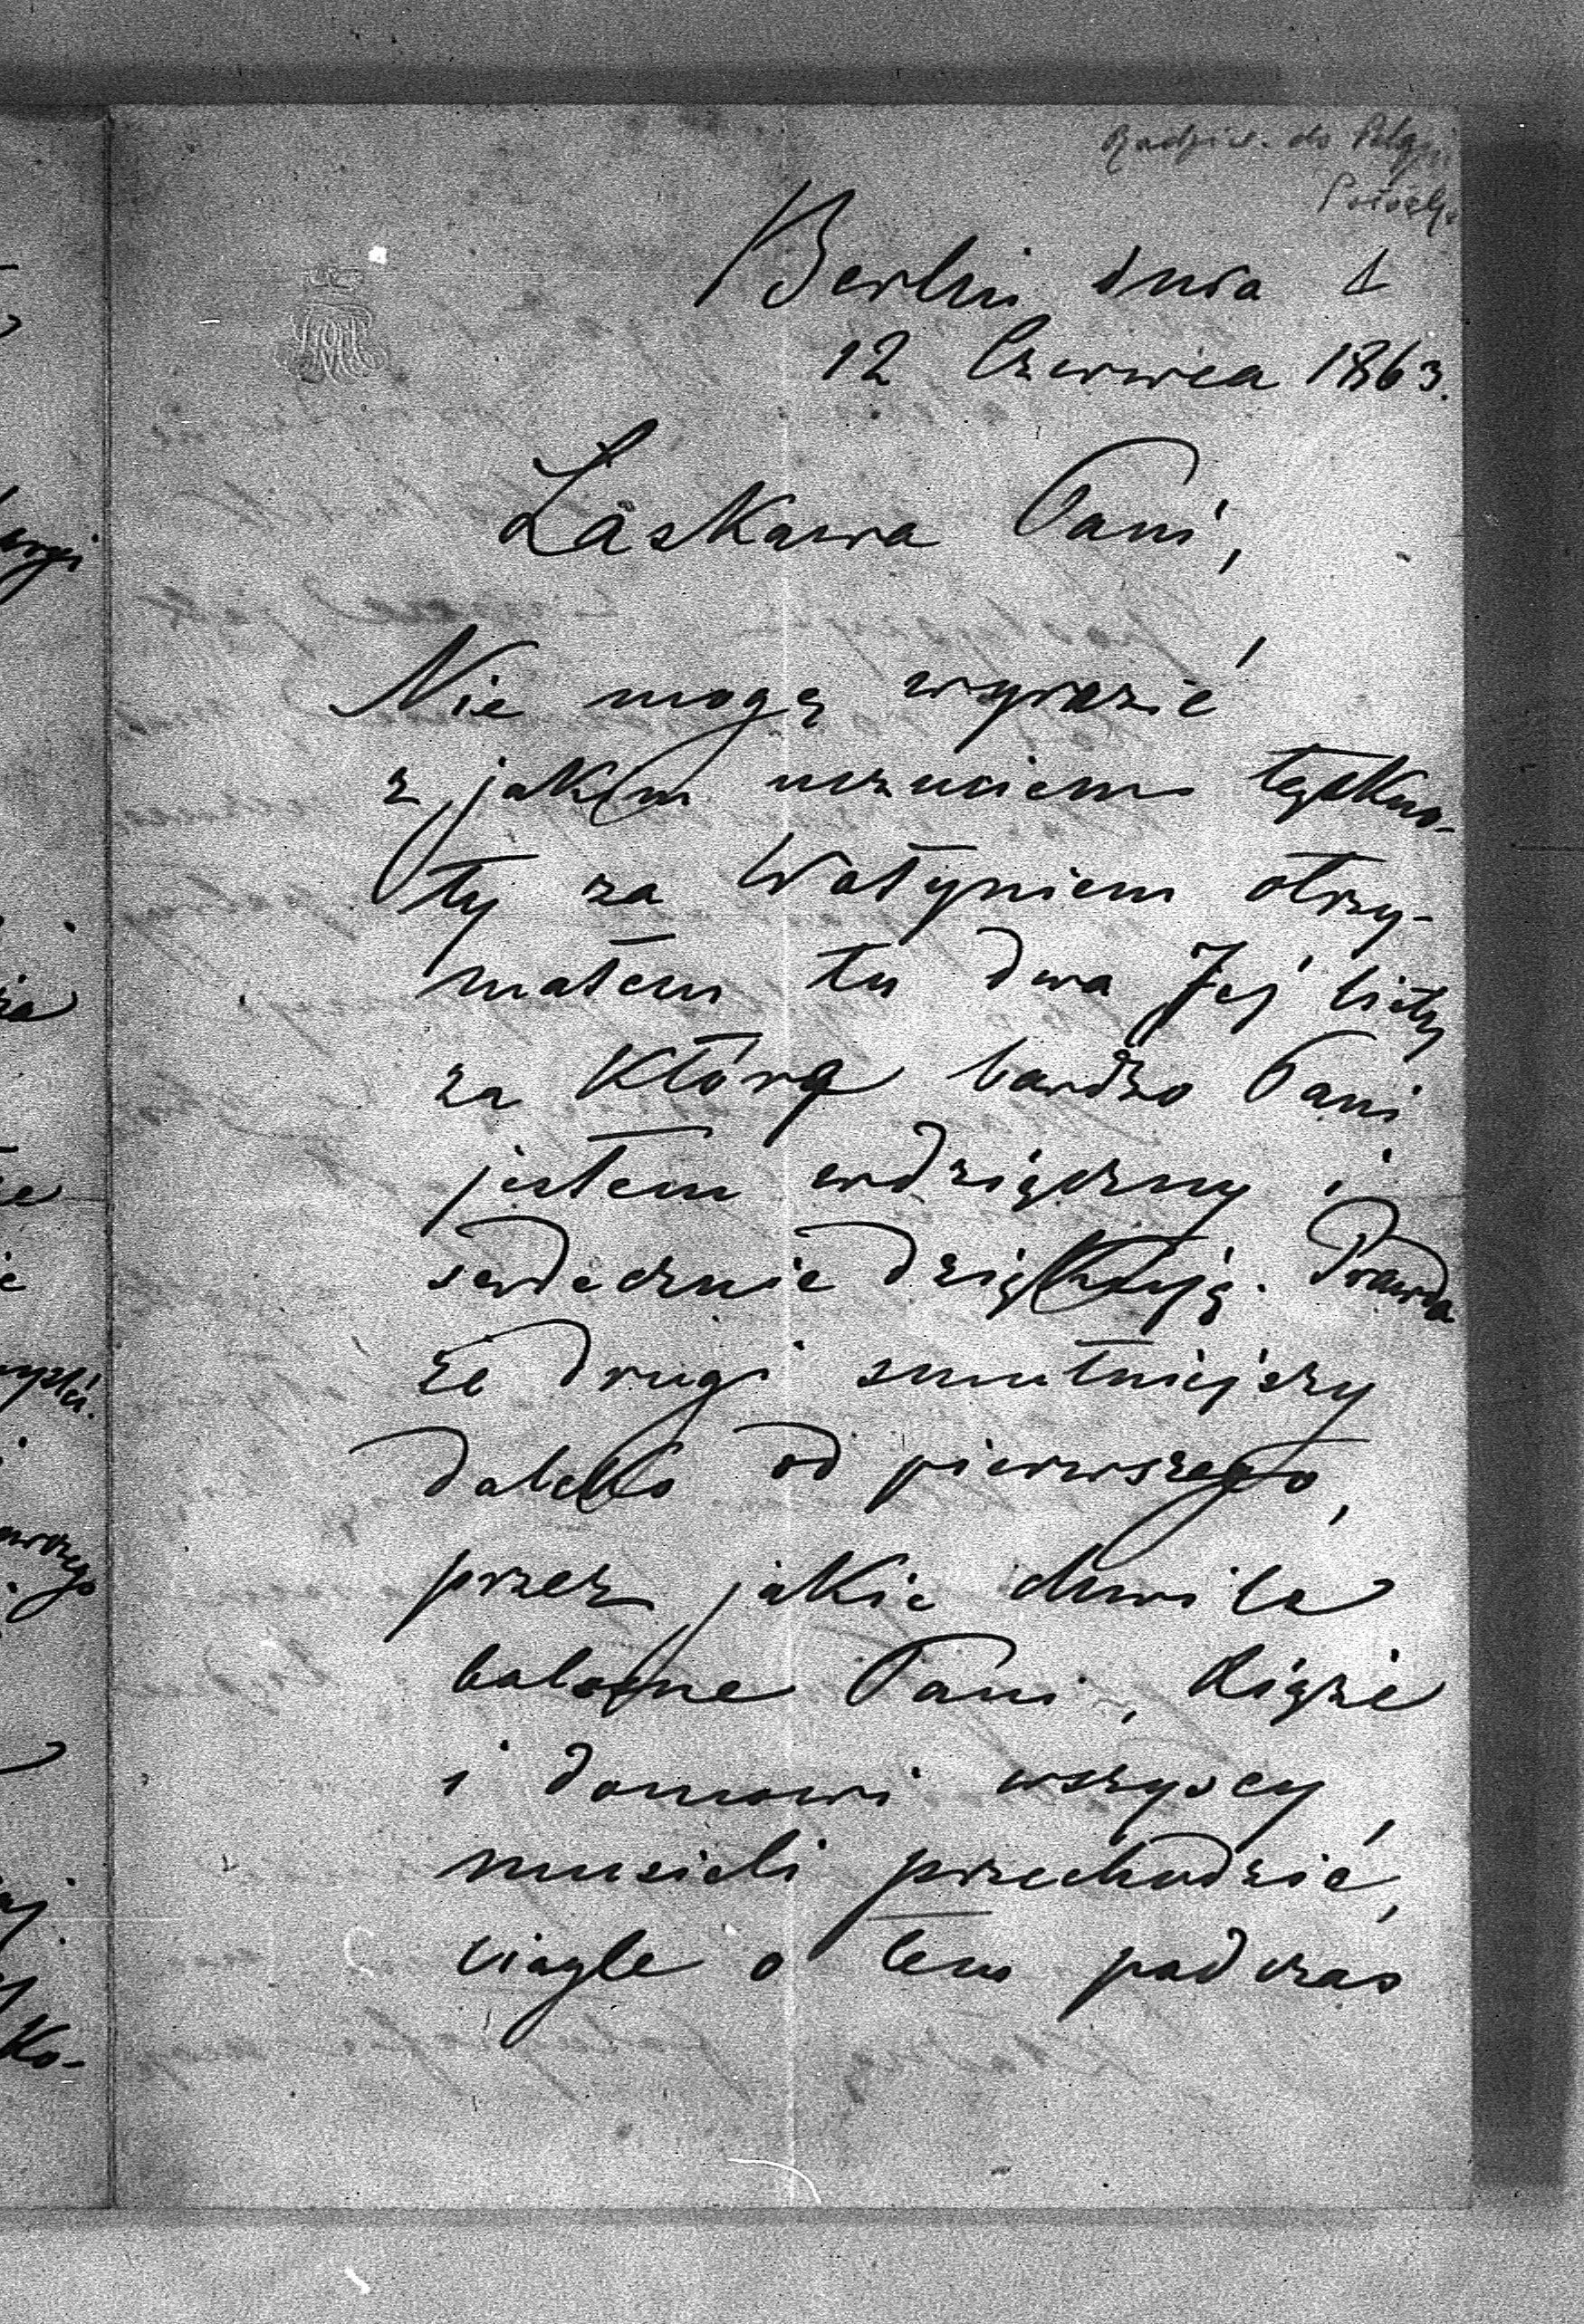 Radziw. do Pelagii
Berlin dnia 1
12 Czerwca 1863.
Łaskawa Pani,
Nie mogę wyrazić
z jakiem uczuciem tęskno-
ty za Wołyniem otrzy-
małem tu dwa Jej listy
za którą bardzo Pani
jestem wdzięczny i
serdecznie dziękuję. Prawda
że drugi smutniejszy
daleko od pierwszego,
przez jakie chwile
bolesne Pani, Xiąże
i domowi wszyscy
musieli przechodzić,
ciągle o tem podczas